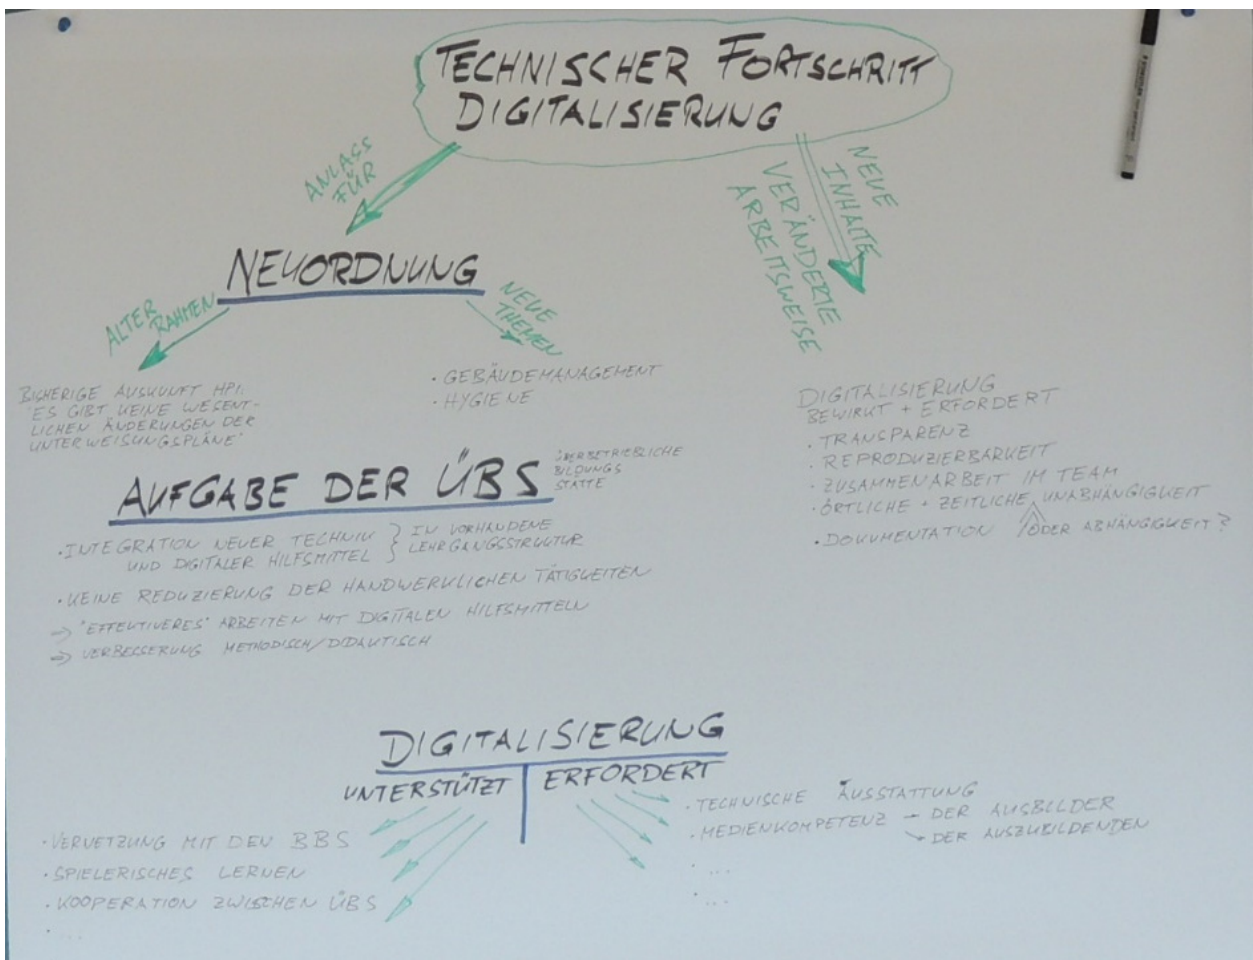 TECHNISCHER FORTSCHRITT
DIGITALISIERUNG
ANLASS
FÜR
NEUE
INHALTE
VERÄNDERTE
ARBEITSWEISE
NEUORDNUNG
ALTER
RAHMEN
NEUE
THEMEN
BISHERIGE AUSKUNFT HPI:
"ES GIBT KEINE WESENT-
LICHEN ÄNDERUNGEN DER
UNTERWEISUNGSPLÄNE"
· GEBÄUDEMANAGEMENT
· HYGIENE
DIGITALISIERUNG
BEWIRKT + ERFORDERT
· TRANSPARENZ
· REPRODUZIERBARKEIT
· ZUSAMMENARBEIT IM TEAM
· ÖRTLICHE + ZEITLICHE UNABHÄNGIGKEIT
ODER ABHÄNGIGKEIT?
· DOKUMENTATION
AUFGABE DER ÜBS
ÜBERBETRIEBLICHE
BILDUNGS
STÄTTE
· INTEGRATION NEUER TECHNIK
UND DIGITALER HILFSMITTEL
IN VORHANDENE
LEHRGANGSSTRUKTUR
· KEINE REDUZIERUNG DER HANDWERKLICHEN TÄTIGKEITEN
→ "EFFEKTIVERES" ARBEITEN MIT DIGITALEN HILFSMITTELN
→ VERBESSERUNG METHODISCH/DIDAKTISCH
DIGITALISIERUNG
UNTERSTÜTZT
ERFORDERT
· VERNETZUNG MIT DEN BBS
· SPIELERISCHES LERNEN
· KOOPERATION ZWISCHEN ÜBS
· ...
· TECHNISCHE AUSSTATTUNG
· MEDIENKOMPETENZ → DER AUSBILDER
→ DER AUSZUBILDENDEN
· ...
· ...